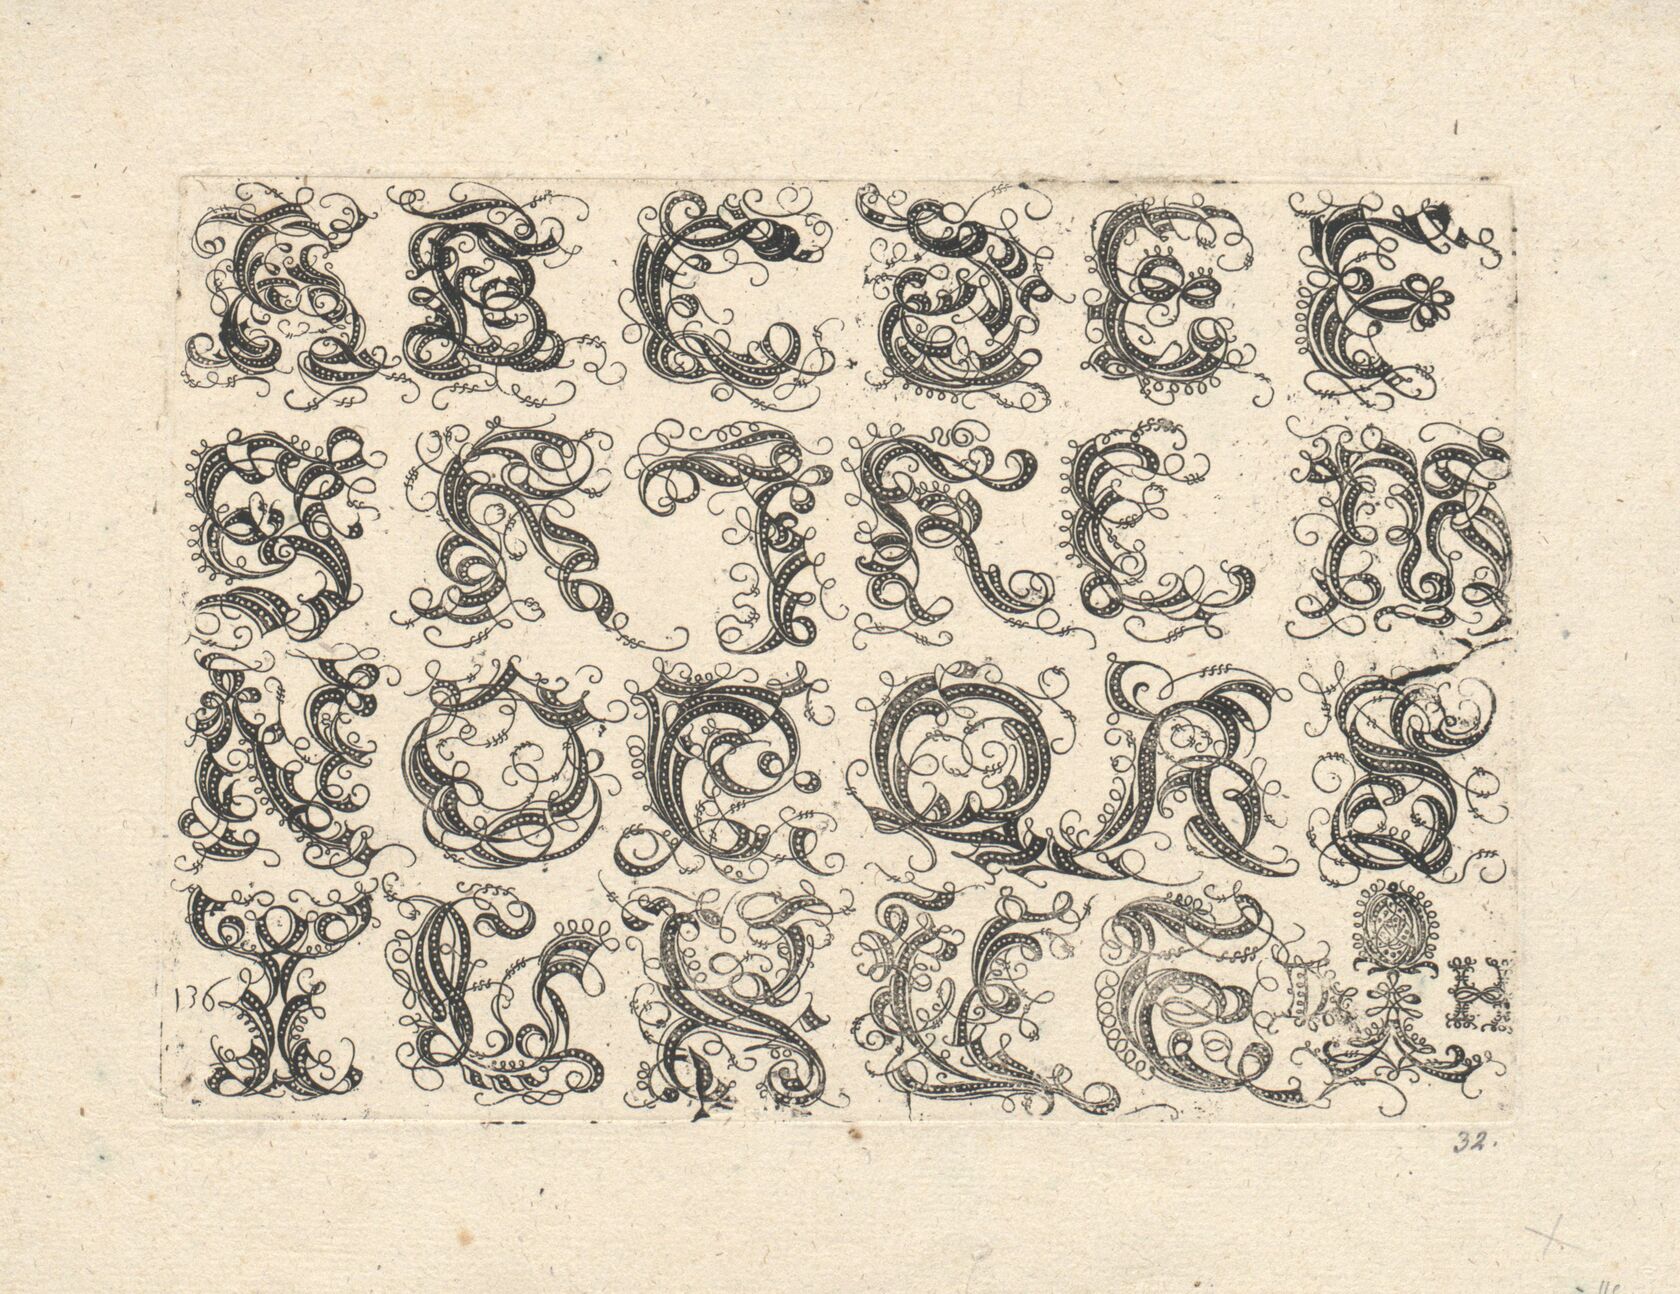 A B C D E F
G H I K L M
N O P Q R S
T V X Y Z
136
32.